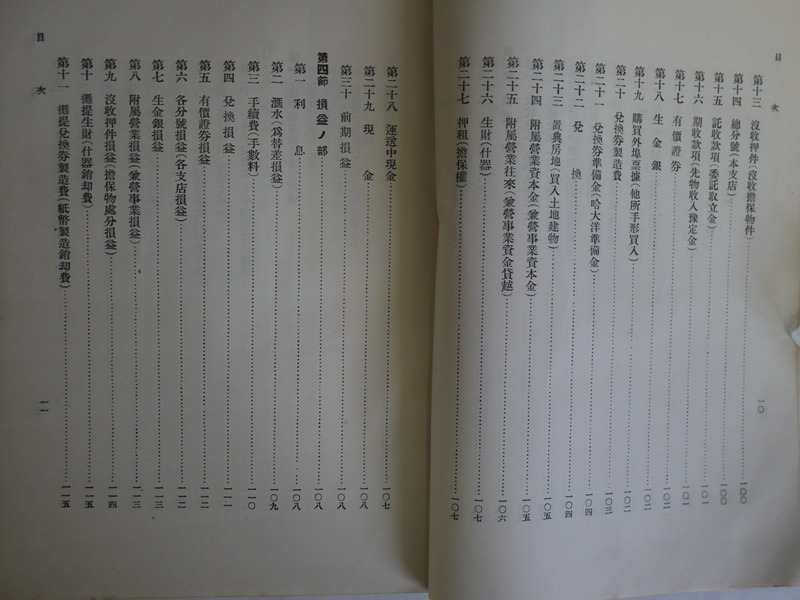 目次
第十三 沒收押件(沒收擔保物件)……一〇〇
第十四 總分號(本支店)……一〇〇
第十五 託收款項(委託取立金)……一〇〇
第十六 期收款項(先物收入豫定金)……一〇一
第十七 有價證券……一〇一
第十八 生金銀……一〇二
第十九 購買外埠票據(他所手形買入)……一〇二
第二十 兌換券製造費……一〇三
第二十一 兌換券準備金(哈大洋準備金)……一〇四
第二十二 兌換……一〇四
第二十三 置典房地(買入土地建物)……一〇五
第二十四 附屬營業資本金(兼營事業資本金)……一〇五
第二十五 附屬營業往來(兼營事業資金貸越)……一〇六
第二十六 生財(什器)……一〇七
第二十七 押租(擔保權)……一〇七
一〇
目次
第二十八 運送中現金……一〇七
第二十九 現金……一〇八
第三十 前期損益……一〇八
第四節 損益ノ部……一〇八
第一 利息……一〇八
第二 滙水(爲替差損益)……一〇九
第三 手續費(手數料)……一一〇
第四 兌換損益……一一一
第五 有價證券損益……一一二
第六 各分號損益(各支店損益)……一一二
第七 生金銀損益……一一三
第八 附屬營業損益(兼營事業損益)……一一三
第九 沒收押件損益(擔保物處分損益)……一一四
第十 攤提生財(什器銷却費)……一一五
第十一 攤提兌換券製造費(紙幣製造銷却費)……一一五
一一